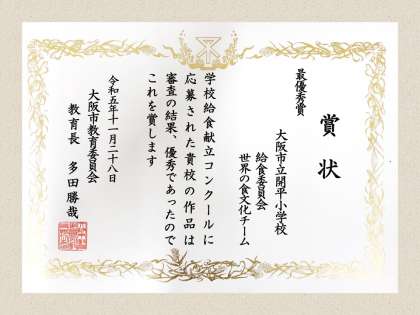 賞状
最優秀賞
大阪市立開平小学校
給食委員会
世界の食文化チーム
学校給食献立コンクールに
応募された貴校の作品は
審査の結果、優秀であったので
これを賞します
令和五年十一月二十八日
大阪市教育委員会
教育長 多田勝哉